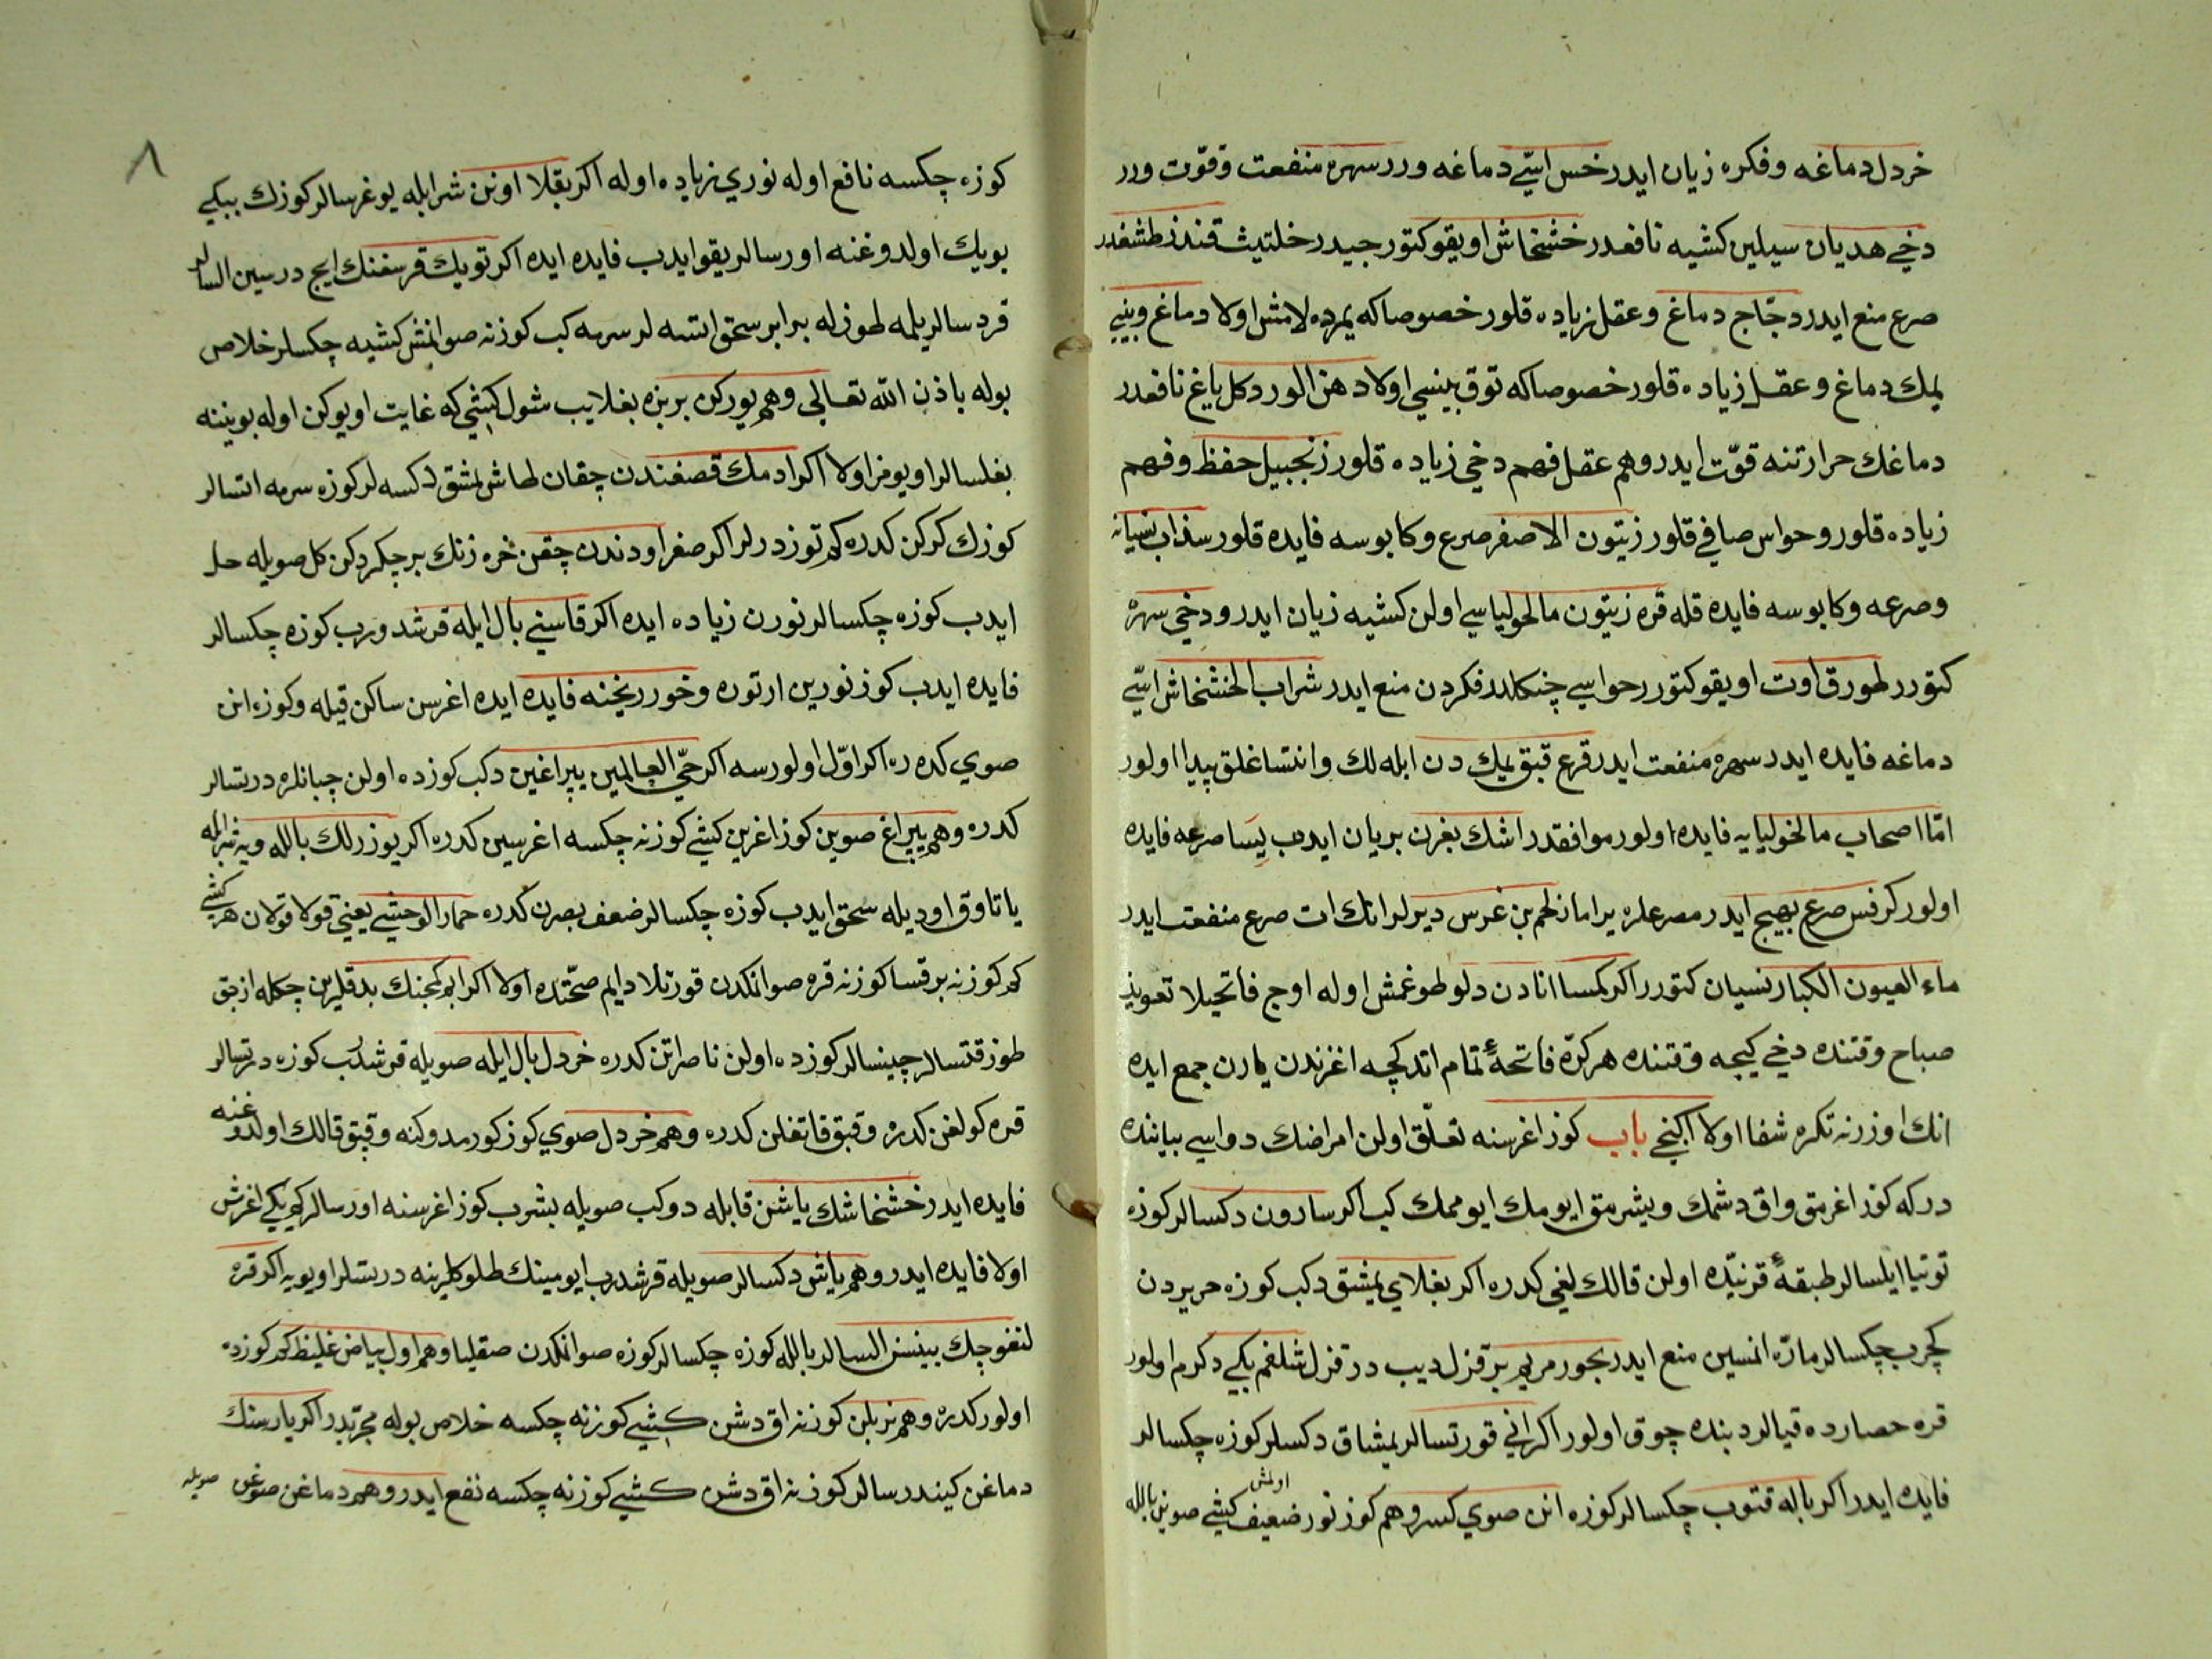 خردل دماغه وفكره زيان ايدر خس اسيّ دماغه ورر سهره منفعت وقوّت ورر
دخي هديان سيلين كشيه نافعدر خشخاش اويقو كتور جيدر خلتيت قندز
صرع منع ايدر دجّاج دماغ وعقل زياده قلور خصوصاكه يمرده لامش اولا دماغ وبيني
يمك دماغ وعقل زياده قلور خصوصاكه توق بينسي اولا دهن الورد كل ياغ نافعدر
دماغك حرارتنه قوّت ايدر وهم عقل فهم دخي زياده قلور زنجبيل حفظ وفهم
زياده قلور وحواس صافي قلور زيتون الاصفر صرع وكابوسه فايده قلور سذاب نسيانه
وصرعه وكابوسه فايده قله قره زيتون مالخولياسي اولن كشيه زيان ايدر ودخي سهره
كتورر طورق اوت اويقو كتورر حواسي فكردن منع ايدر شراب الخشخاش اسيّ
دماغه فايده ايدر سهره منفعت ايدر قرع قبق يمك دن ابله لك وانتساغلق پيدا اولور
امّا اصحاب مالخوليايه فايده اولور موافقدر اشك بغرن بريان ايدب يسا صرعه فايده
اولور كرفس صرع بهيج ايدر مصرعلره يراماز لحم بن غرس ديرلر انك ات صرع منفعت ايدر
ماء العيون الكبار نسيان كتورر اكر كمسا انادن دلو طوغمش اوله اوج فاتحيلا تعويذ
صباح وقتنده دخي كيجه وقتنده هر كرّه فاتحهٔ تمام اتدكچه اغزندن يارن جمع ايده
انك اوزرنه تكره شفا اولا اكنجي باب كوز اغرسنه تعلّق اولن امراضك دواسي بياننده
دركه كوز اغرمق واق دشمك ويشرمق ايومك ايوممك كب اكر سارون دكسالر كوزه
توتيا ايلسالر طبقهٔ قرنيّده اولن قالك لغي كدره اكر بغلاي يمشق دكب كوزه حريردن
كچرب چكسالر مادّه انمسين منع ايدر بخور مريم بر قزل ديب در قزل شلغم بكي دكرم اولور
قره حصارده قيالر دبنده چوق اولور اكر اني قورتسالر يمشاق دكسلر كوزه چكسالر
فايده ايدر اكر باله قتوب چكسالر كوزه انن صوي كسر وهم كوز نور ضعيف اولمش كيشي صوين بالله
٨
كوزه چكسه نافع اوله نوري زياده اوله اكر بقلا اونن شرابله يوغرسالر كوزك ببكي
بويك اولدوغنه اورسالر يقو ايدب فايده ايده اكر توبك قرسغنك ايج درسين السالر
قردسالر يلمه طوزله برابر سحق اتسه لر سرمه كب كوزنه صو انمش كشيه چكسلر خلاص
بوله باذن الله تعالى وهم يوركن بر بزه بغلايب شول كيشي كه غايت اويوكن اوله بويننه
بغلسالر اويومز اولا اكر ادمك قصغندن چقان طاش يمشق دكسه لر كوزه سرمه اتسالر
كوزك كركن كدره كم توز درلر اكر صغر اودندن چقن خره زنك بر چكردكن كل صويله حل
ايدب كوزه چكسالر نورن زياده ايده اكر قاسني بال ايله قرشدورب كوزه چكسالر
فايده ايدب كوز نورين ارتوره وخورريخنه فايده ايده اغرسن ساكن قيله وكوزه انن
صوي كدره اكر اوّل اولورسه اكر حيّ العالمين يپراغين دكب كوزده اولن چبانلره درتسالر
كدره وهم يپراغ صوين كوز اغرين كيشي كوزنه چكسه اغرسين كدره اكر يوزرلك بالله
يا تاوق اوديله سحق ايدب كوزه چكسالر ضعف بصرن كدره حمار الوحشي يعني قولا قولان هر كيشي
كم كوزنه برقسا كوزنه قره صو انمكدن قورتلا دايم صحّتده اولا اكر
طوز قتسالر چينسالر كوزده اولن ناصر اتن كدره خردل بال ايله صويله قرشدرب كوزه درتسالر
قره كولغن كدره وقبق قاتغلن كدره وهم خردل صوي كوز كورمدوكنه وقبق قالك اولدوغنه
فايده ايدر خشخاشك ياشن قابله دوكب صويله بشرب كوز اغرسنه اورسالر كم يكي اغرش
اولا فايده ايدر وهم ياش دكسالر صويله قرشدرب ايومينك طلوكلرينه درتسلر اويويه اكر قره
لنغوچك بينسن السالر بالله كوزه چكسالر كوزه صو انمكدن صقليا وهم اول بياض غليظ كم كوزده
اولور كدره وهم كوزنه اق دشن كيشي كوزنه چكسه خلاص بوله مجرّبدر اكر يارسنك
دماغن كيندرسالر كوزنه اق دشن كشي كوزنه چكسه نفع ايدر وهم دماغن صوغن
صويله